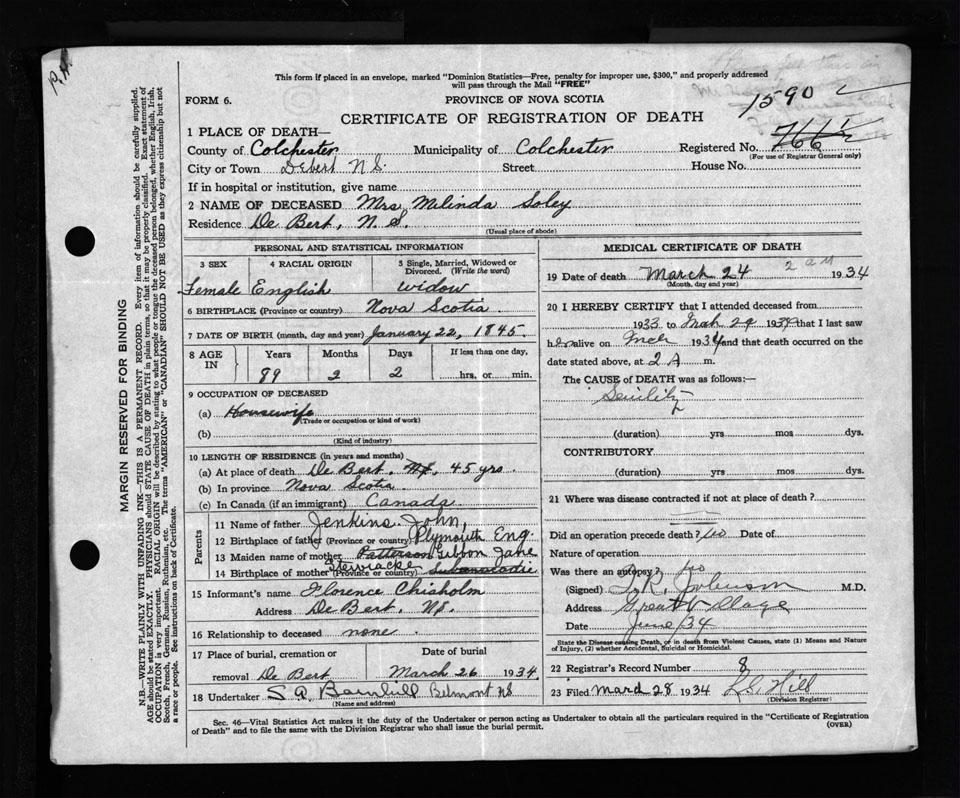 P.H.
This form if placed in an envelope, marked "Dominion Statistics—Free, penalty for improper use, $300," and properly addressed
will pass through the Mail "FREE"
FORM 6.
PROVINCE OF NOVA SCOTIA
1590
CERTIFICATE OF REGISTRATION OF DEATH
1 PLACE OF DEATH—
County of Colchester Municipality of Colchester Registered No. 766½
(For use of Registrar General only)
City or Town Debert N S. Street House No.
If in hospital or institution, give name
2 NAME OF DECEASED Mrs Melinda Soley
Residence De Bert, N. S.
(Usual place of abode)
PERSONAL AND STATISTICAL INFORMATION
3 SEX 4 RACIAL ORIGIN 5 Single, Married, Widowed or Divorced. (Write the word)
Female English widow
6 BIRTHPLACE (Province or country) Nova Scotia
7 DATE OF BIRTH (month, day and year) January 22, 1845
8 AGE IN Years Months Days If less than one day,
89 2 2 hrs. or min.
9 OCCUPATION OF DECEASED
(a) Housewife
(Trade or occupation or kind of work)
(b)
(Kind of industry)
10 LENGTH OF RESIDENCE (in years and months)
(a) At place of death De Bert, 45 yrs.
(b) In province Nova Scotia
(c) In Canada (if an immigrant) Canada
Parents
11 Name of father Jenkins John,
12 Birthplace of father (Province or country) Plymouth Eng.
13 Maiden name of mother Patterson Gibbon Jane
14 Birthplace of mother (Province or country) Stewiacke Subanacadie
15 Informant's name Florence Chisholm
Address De Bert. NS.
16 Relationship to deceased none
17 Place of burial, cremation or removal De Bert
Date of burial March 26 1934
18 Undertaker S A Barnhill Belmont NS
(Name and address)
MEDICAL CERTIFICATE OF DEATH
19 Date of death March 24 2 am 1934
(Month, day and year)
20 I HEREBY CERTIFY that I attended deceased from
1933 to 1934 that I last saw
her alive on 1934 and that death occurred on the
date stated above, at 2 A m.
The CAUSE OF DEATH was as follows:—
Senility
(duration) yrs mos dys.
CONTRIBUTORY
(duration) yrs mos dys.
21 Where was disease contracted if not at place of death?
Did an operation precede death? No Date of
Nature of operation
Was there an autopsy? no
(Signed) Johnson M.D.
Address Great Village
Date June 34
State the Disease causing Death, or in death from Violent Causes, state (1) Means and Nature
of Injury, (2) whether Accidental, Suicidal or Homicidal.
22 Registrar's Record Number 8
23 Filed March 28 1934 Hill
(Division Registrar)
Sec. 46—Vital Statistics Act makes it the duty of the Undertaker or person acting as Undertaker to obtain all the particulars required in the "Certificate of Registration
of Death" and to file the same with the Division Registrar who shall issue the burial permit.
(OVER)
MARGIN RESERVED FOR BINDING
N.B.—WRITE PLAINLY WITH UNFADING INK—THIS IS A PERMANENT RECORD. Every item of information should be carefully supplied.
AGE should be stated EXACTLY. PHYSICIANS should STATE CAUSE OF DEATH in plain terms, so that it may be properly classified. Exact statement of
OCCUPATION is very important. RACIAL ORIGIN will be described by stating to what people or tongue the deceased person belonged, whether English, Irish,
Scotch, French, German, Russian, Ruthenian, etc. The terms "AMERICAN" or "CANADIAN" SHOULD NOT BE USED as they express citizenship but not
a race or people. See instructions on back of Certificate.